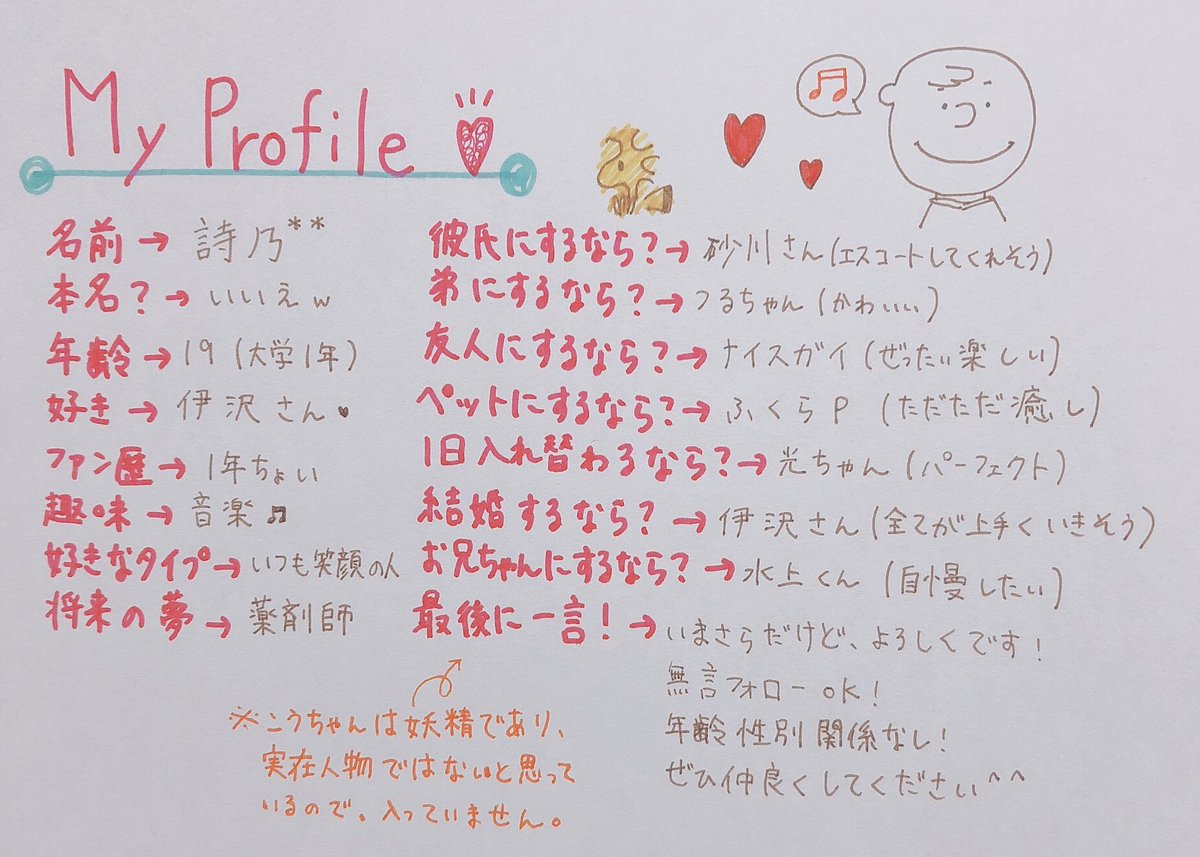 My Profile
名前→詩乃**
本名?→いいえw
年齢→19(大学1年)
好き→伊沢さん♥
ファン歴→1年ちょい
趣味→音楽♬
好きなタイプ→いつも笑顔の人
将来の夢→薬剤師
彼氏にするなら?→砂川さん(エスコートしてくれそう)
弟にするなら?→つるちゃん(かわいい)
友人にするなら?→ナイスガイ(ぜったい楽しい)
ペットにするなら?→ふくらP(ただただ癒し)
1日入れ替わるなら?→光ちゃん(パーフェクト)
結婚するなら?→伊沢さん(全てが上手くいきそう)
お兄ちゃんにするなら?→水上くん(自慢したい)
最後に一言!→いまさらだけど、よろしくです!
無言フォローOK!
年齢性別関係なし!
ぜひ仲良くしてください^^
※こうちゃんは妖精であり、
実在人物ではないと思って
いるので、入っていません。